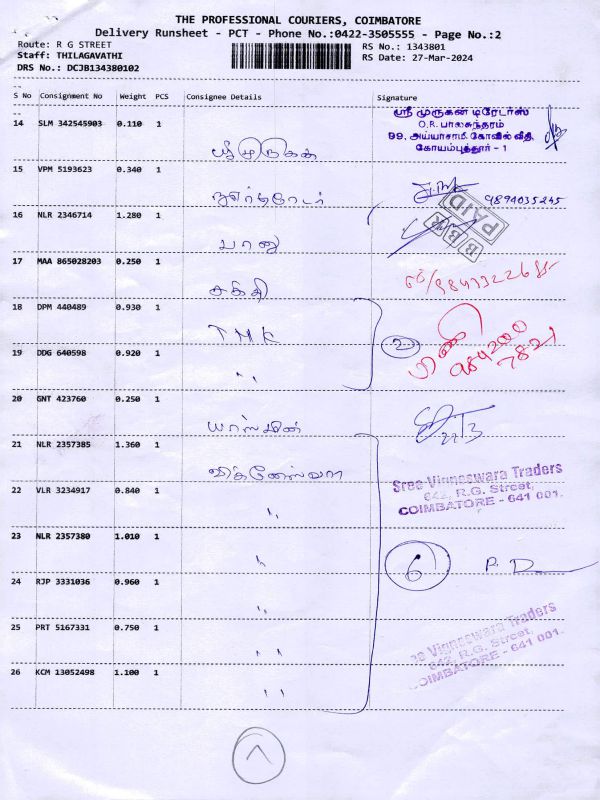 THE PROFESSIONAL COURIERS, COIMBATORE
Delivery Runsheet - PCT - Phone No.:0422-3505555 - Page No.:2
Route: R G STREET
Staff: THILAGAVATHI
DRS No.: DCJB134380102
RS No.: 1343801
RS Date: 27-Mar-2024
S No Consignment No Weight PCS Consignee Details Signature
14 SLM 342545903 0.110 1
ஸ்ரீ முருகன் டிரேடர்ஸ்
O.R. பாலசுந்தரம்
99, அய்யாசாமி கோவில் வீதி,
கோயம்புத்தூர் - 1
ஸ்ரீ முருகன்
15 VPM 5193623 0.340 1
9894035245
16 NLR 2346714 1.280 1
PAID
பானு
17 MAA 865028203 0.250 1
சக்தி
18 DPM 440489 0.930 1
TMK
2
மணி
984200
7821
19 DDG 640598 0.920 1
"
20 GNT 423760 0.250 1
யாஸ்மின்
22/3
21 NLR 2357385 1.360 1
விக்னேஸ்வரா
Sree Vigneswara Traders
642, R.G. Street,
COIMBATORE - 641 001.
22 VLR 3234917 0.840 1
"
23 NLR 2357380 1.010 1
"
6
24 RJP 3331036 0.960 1
"
25 PRT 5167331 0.750 1
"
ee Vigneswara Traders
642, R.G. Street,
COIMBATORE - 641 001.
26 KCM 13052498 1.100 1
"